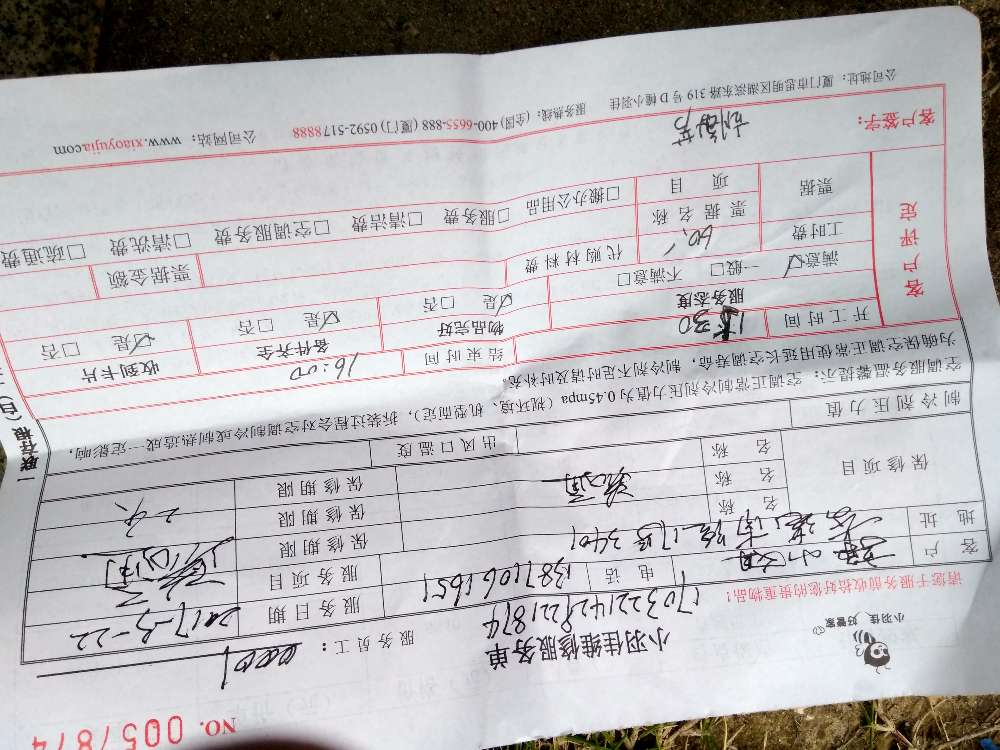 NO. 0057874
小羽佳 好管家
小羽佳维修服务单
服务员工：
17032214282 21874
请您于服务前收拾好您的贵重物品！
客户
电话 13871061651
服务日期 2017-3-22
地址
服务项目
保修项目
名称
保修期限
名称
保修期限
名称
保修期限
制冷剂压力值
出风口温度
空调服务温馨提示：空调正常制冷剂压力值为0.45mpa（视环境、机型而定），拆装过程会对空调制冷或制热造成一定影响，
为确保空调正常使用延长空调寿命，制冷剂不足时请及时补充。
一联存根（白）
客户评定
开工时间 15:30
结束时间 16:00
收到卡片 ☑是 □否
服务态度
满意☑ 一般□ 不满意□
物品完好 ☑是 □否
备件齐全 ☑是 □否
工时费 60.
代购材料费
票据金额
票据
票据名称
项目
□搬办公用品 □服务费 □清洁费 □空调服务费 □清洗费 □疏通费
客户签字：
公司地址：厦门市思明区湖滨东路319号D幢小羽佳 服务热线：(全国)400-6655-888 (厦门) 0592-5178888 公司网站：www.xiaoyujia.com